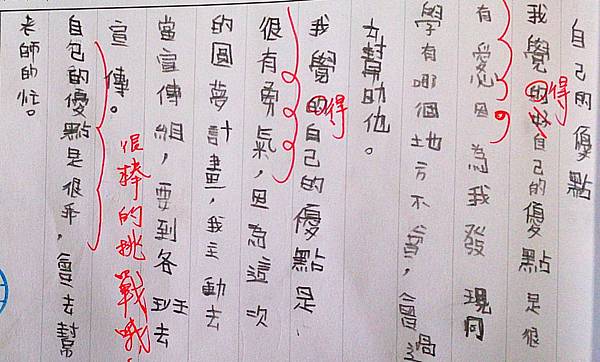 自己的優點
我覺的好自己的優點是很
得
有愛心因為我發現同
學有哪個地方不會，會過
去幫助他。
我覺的自己的優點是
得
很有勇氣，因為這次
的圓夢計畫，我主動去
當宣傳組，要到各班去
宣傳。
很棒的挑戰哦
自包的優點是很乖，會去幫
老師的忙。